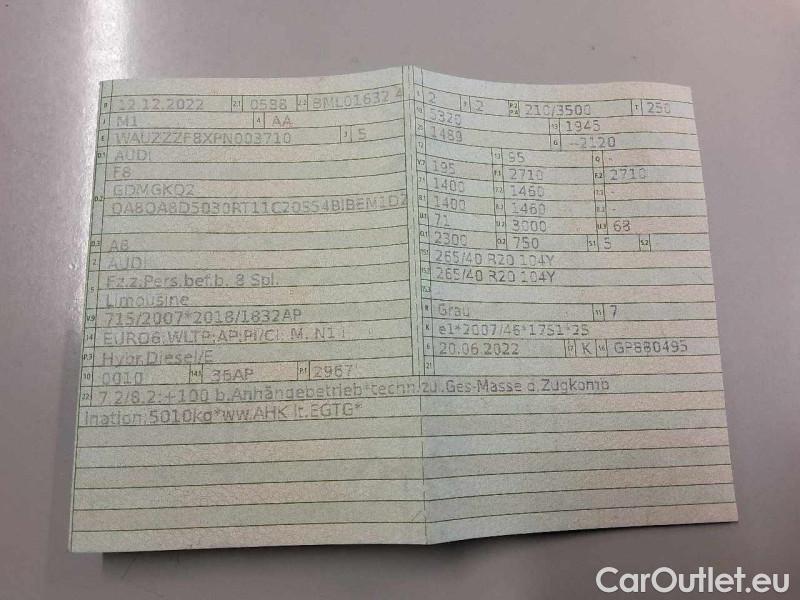 B 12.12.2022 2.1 0588 2.2 BML01632 4
J M1 4 AA
E WAUZZZF8XPN003710 3 5
D.1 AUDI
F8
D.2 GDMGKQ2
0A8QA8D5030RT11C20SS4BIBEM1DZ
D.3 A8
2 AUDI
5 Fz.z.Pers.bef.b. 8 Spl.
Limousine
V.9 715/2007*2018/1832AP
14 EURO6;WLTP;AP;PI/CI; M, N1 I
P.3 Hybr.Diesel/E
10 0010 14.1 36AP P.1 2967
L 2 9 2 P.2 P.4 210/3500 T 250
18 5320 19 1945
20 1488 G --2120
12 - 13 95 Q -
V.7 195 F.1 2710 F.2 2710
7.1 1400 7.2 1460 7.3 -
8.1 1400 8.2 1460 8.3 -
U.1 71 U.2 3000 U.3 68
O.1 2300 O.2 750 S.1 5 S.2 -
15.1 265/40 R20 104Y
15.2 265/40 R20 104Y
15.3 -
R Grau 11 7
K e1*2007/46*1751*25
6 20.06.2022 17 K 16 GP880495
21
22 7.2/8.2:+100 b.Anhängebetrieb*techn.zul.Ges-Masse d.Zugkomb
ination:5010kg*ww.AHK lt.EGTG*
CarOutlet.eu